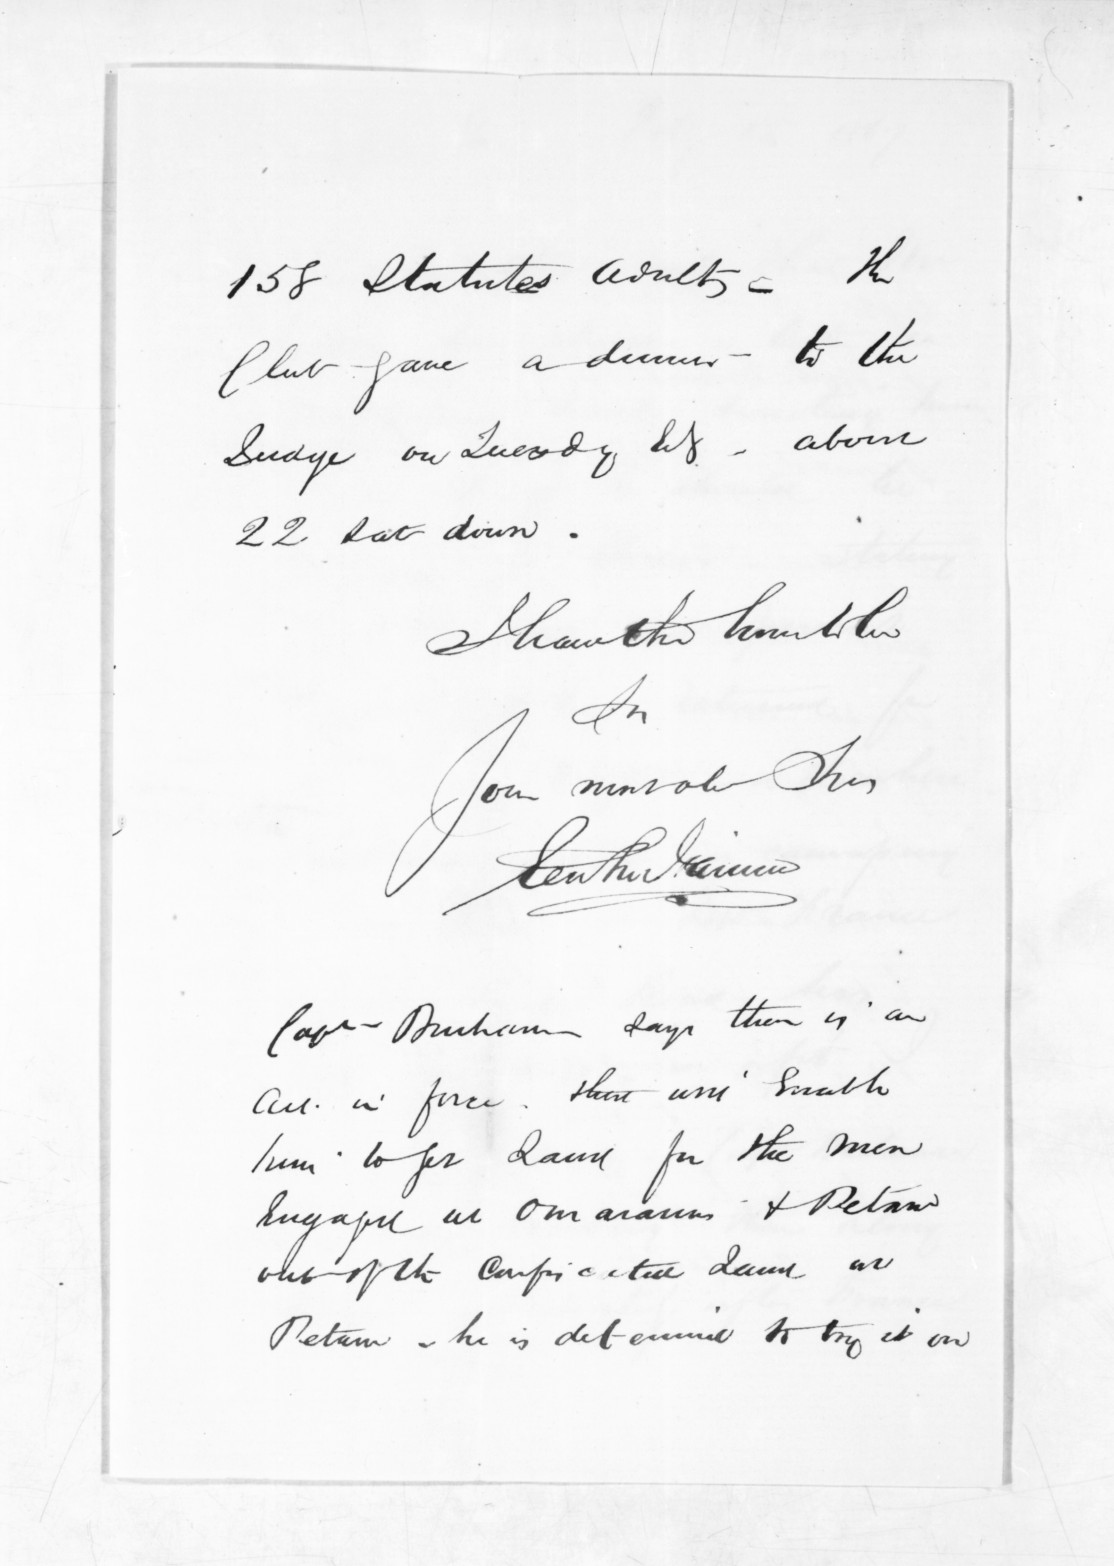 158 Statutes Adults – The
Club gave a dinner – to the
Judge on Tuesday – about
22 sat down.
I have the honor to be
Sir
Your most obt Ser
Capt – says there is an
Act in force. that will Enable
him to get Land for the men
Engaged at Omaranui & Petane
out of the Confiscated Land at
Petane – he is determined to try it on